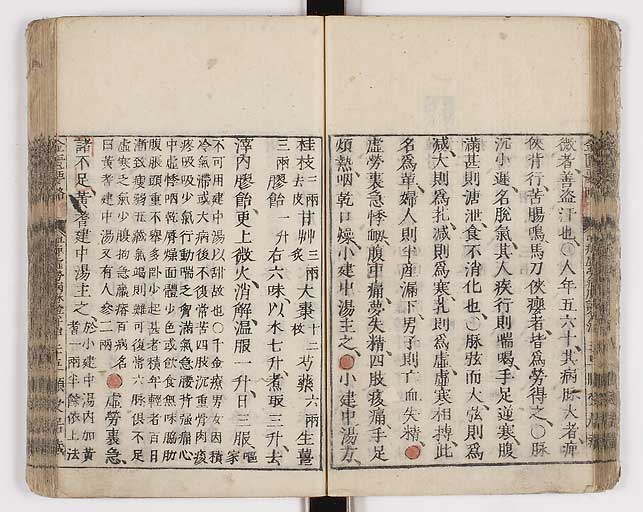 微者善盜汗也〇人年五六十其病脉大者痺
俠背行苦腸鳴馬刀俠癭者皆爲勞得之〇脉
沉小遲名脫氣其人疾行則喘喝手足逆寒腹
滿甚則溏泄食不消化也〇脉弦而大弦則爲
減大則爲芤減則爲寒芤則爲虛虛寒相搏此
名爲革婦人則半産漏下男子則亡血失精
虛勞裏急悸衂腹中痛夢失精四肢痠痛手足
煩熱咽乾口燥小建中湯主之 小建中湯方
桂枝三兩去皮甘艸三兩炙大棗十二枚芍藥六兩生薑
三兩膠飴一升右六味以水七升煮取三升去
滓內膠飴更上微火消解溫服一升日三服嘔家
不可用建中湯以甜故也〇千金療男女因積
冷氣滯或大病後不復常苦四肢沉重骨肉痠
疼吸吸少氣行動喘乏胷滿氣急腰背强痛心
中虛悸咽乾唇燥面體少色或飲食無味脇肋
腹脹頭重不擧多臥少起甚者積年輕者百日
漸致瘦弱五藏氣竭則難可復常六脉俱不足
虛寒乏氣少腹拘急羸瘠百病名
曰黃耆建中湯又有人參二兩 虛勞裏急
諸不足黃耆建中湯主之 於小建中湯內加黃
耆一兩半餘依上法